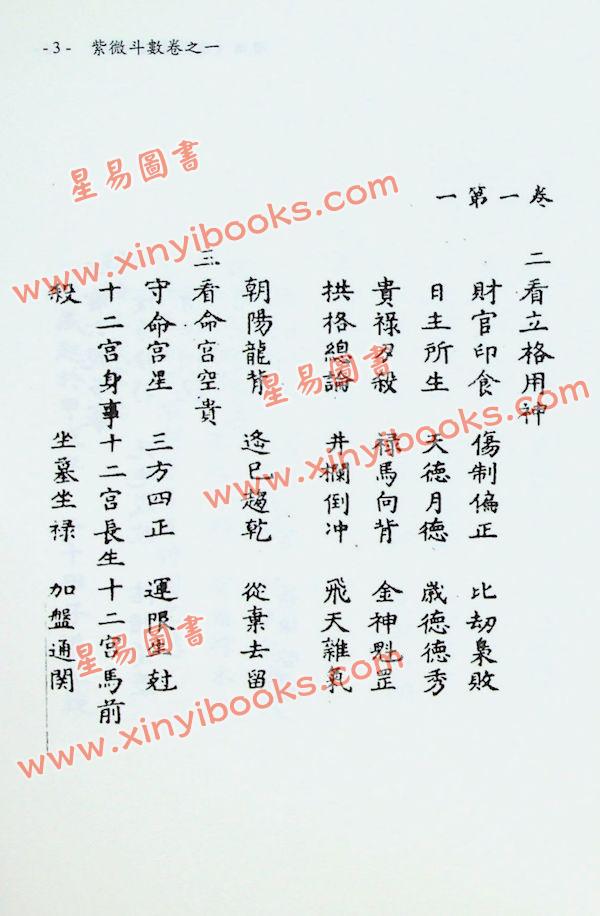 -3- 紫微斗數卷之一
一第一卷
二看立格用神
財官印食 傷制偏正 比劫梟敗
日主所生 天德月德 歲德德秀
貴祿刃殺 禄馬向背 金神魁罡
拱格總論 井欄倒冲 飛天雜氣
朝陽龍背 遙巳趨乾 從棄去留
三看命宮空貴
守命宮星 三方四正 運限生尅
十二宮身事 十二宮長生 十二宮馬前
殺 坐墓坐禄 加盤通関
星易圖書
www.xinyibooks.com
星易圖書
www.xinyibooks.com
星易圖書
www.xinyibooks.com